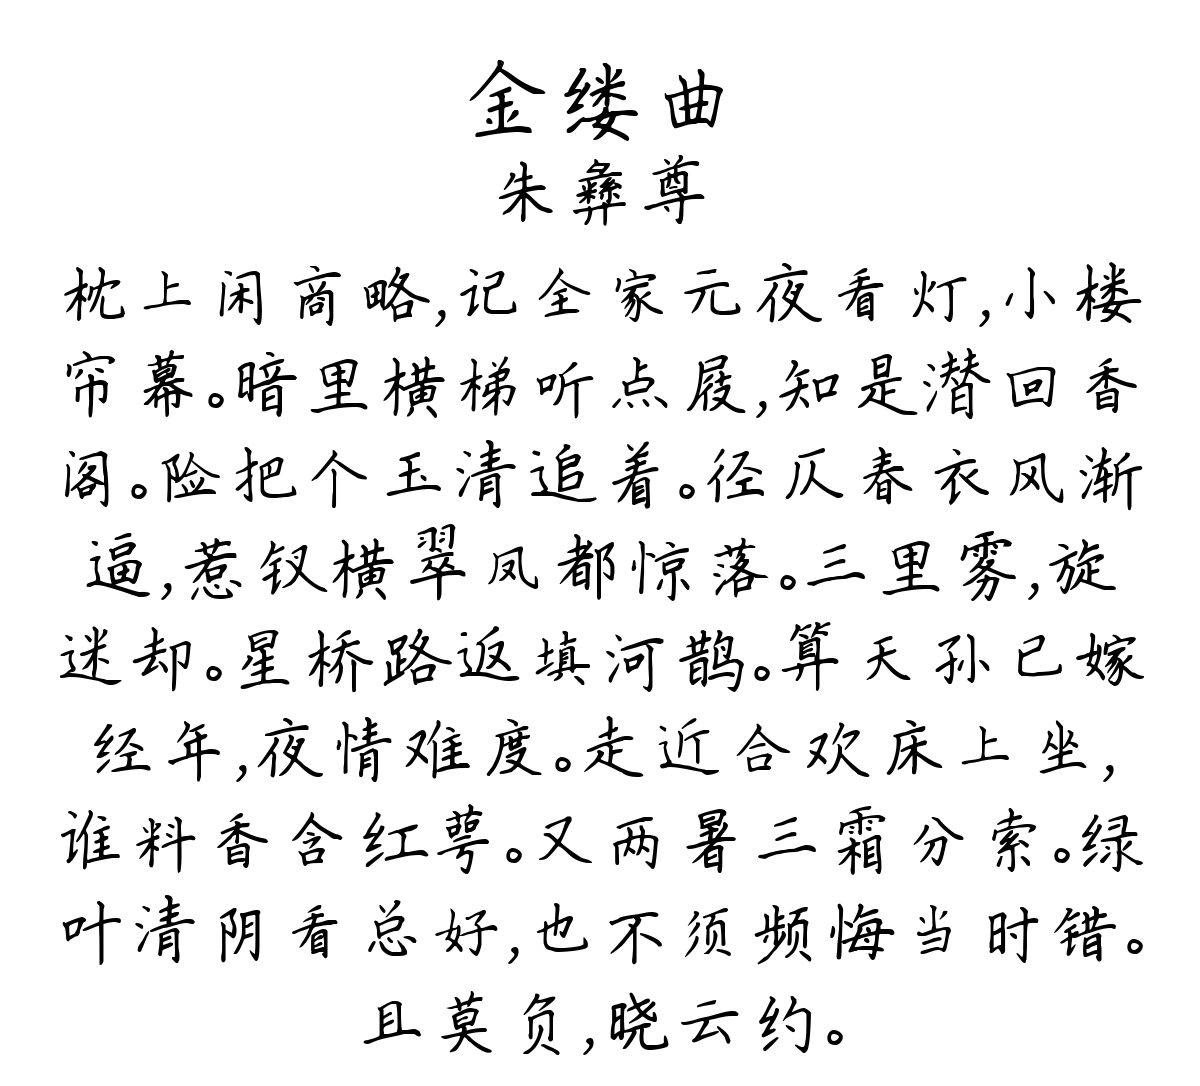 金缕曲
朱彝尊
枕上闲商略,记全家元夜看灯,小楼
帘幕。暗里横梯听点屐,知是潜回香
阁。险把个玉清追着。径仄春衣风渐
逼,惹钗横翠凤都惊落。三里雾,旋
迷却。星桥路返填河鹊。算天孙已嫁
经年,夜情难度。走近合欢床上坐,
谁料香含红萼。又两暑三霜分索。绿
叶清阴看总好,也不须频悔当时错。
且莫负,晓云约。